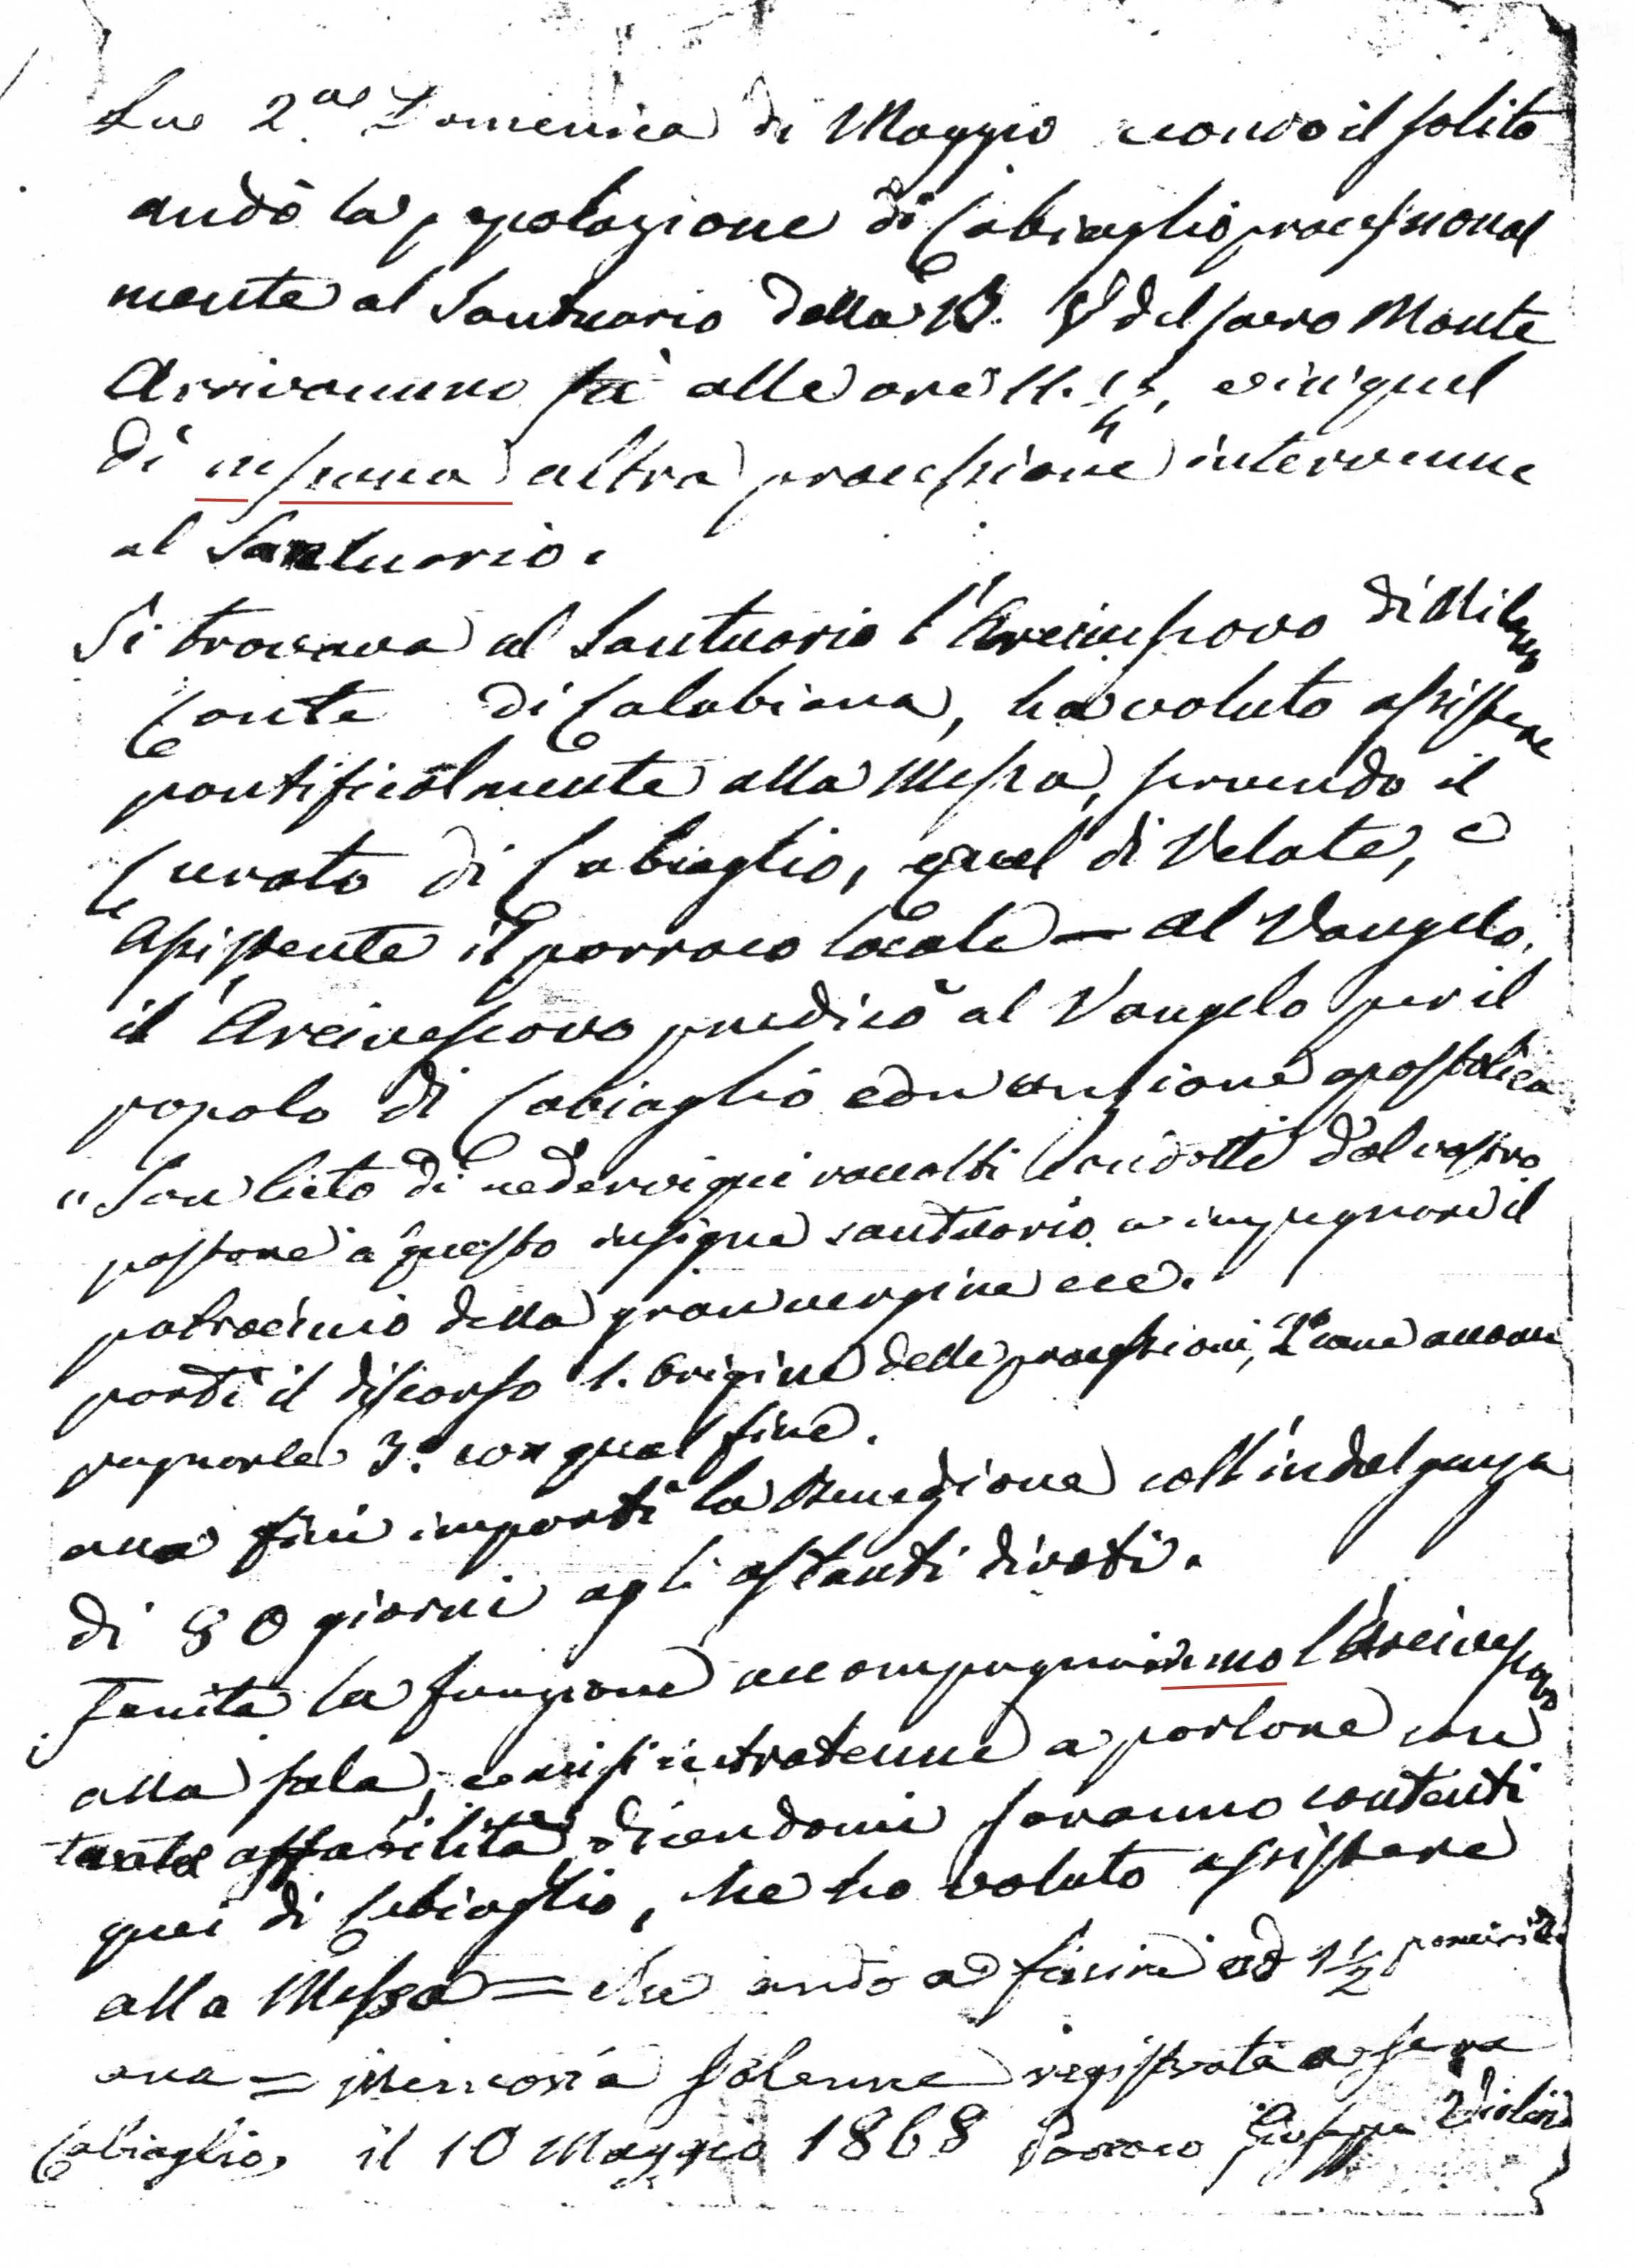 La 2.a Domenica di Maggio secondo il solito
andò la popolazione di Cabiaglio procession
mente al Santuario della B. V. del sacro Monte
Arrivammo là alle ore 11. 1/4, e in quel
dì nessuna altra processione intervenne
al Santuario.
Si trovava al Santuario l'Arcivescovo di Milano
Conte di Calabiana, ha voluto assistere
pontificalmente alla Messa, servendo il
Curato di Cabiaglio, e quel di Velate, e
assistente il parroco locale — al Vangelo,
il Arcivescovo predicò al Vangelo per il
popolo di Cabiaglio con unzione apostolica
"Son lieto di vedervi qui raccolti condotti dal vostro
pastore a questo insigne santuario a impegnare il
patrocinio della gran vergine ecc.
partì il discorso 1. Origine delle processioni, 2° come accom
pagnarle 3.° con qual fine.
alla fine impartì la Benedizione coll'indulgenza
di 80 giorni agli astanti divoti.
Fenita la funzione accompagnammo l'Arcivescovo
alla sala, e mi si intratenne a parlare con
tanta affabilità, dicendomi saranno contenti
quei di Cabiaglio, che ho voluto assistere
alla Messa = che andò a finire ad 1 1/2 pomeridi
ana = Memoria solenne registrata a sera
Cabiaglio, il 10 Maggio 1868 Parroco Giuseppe